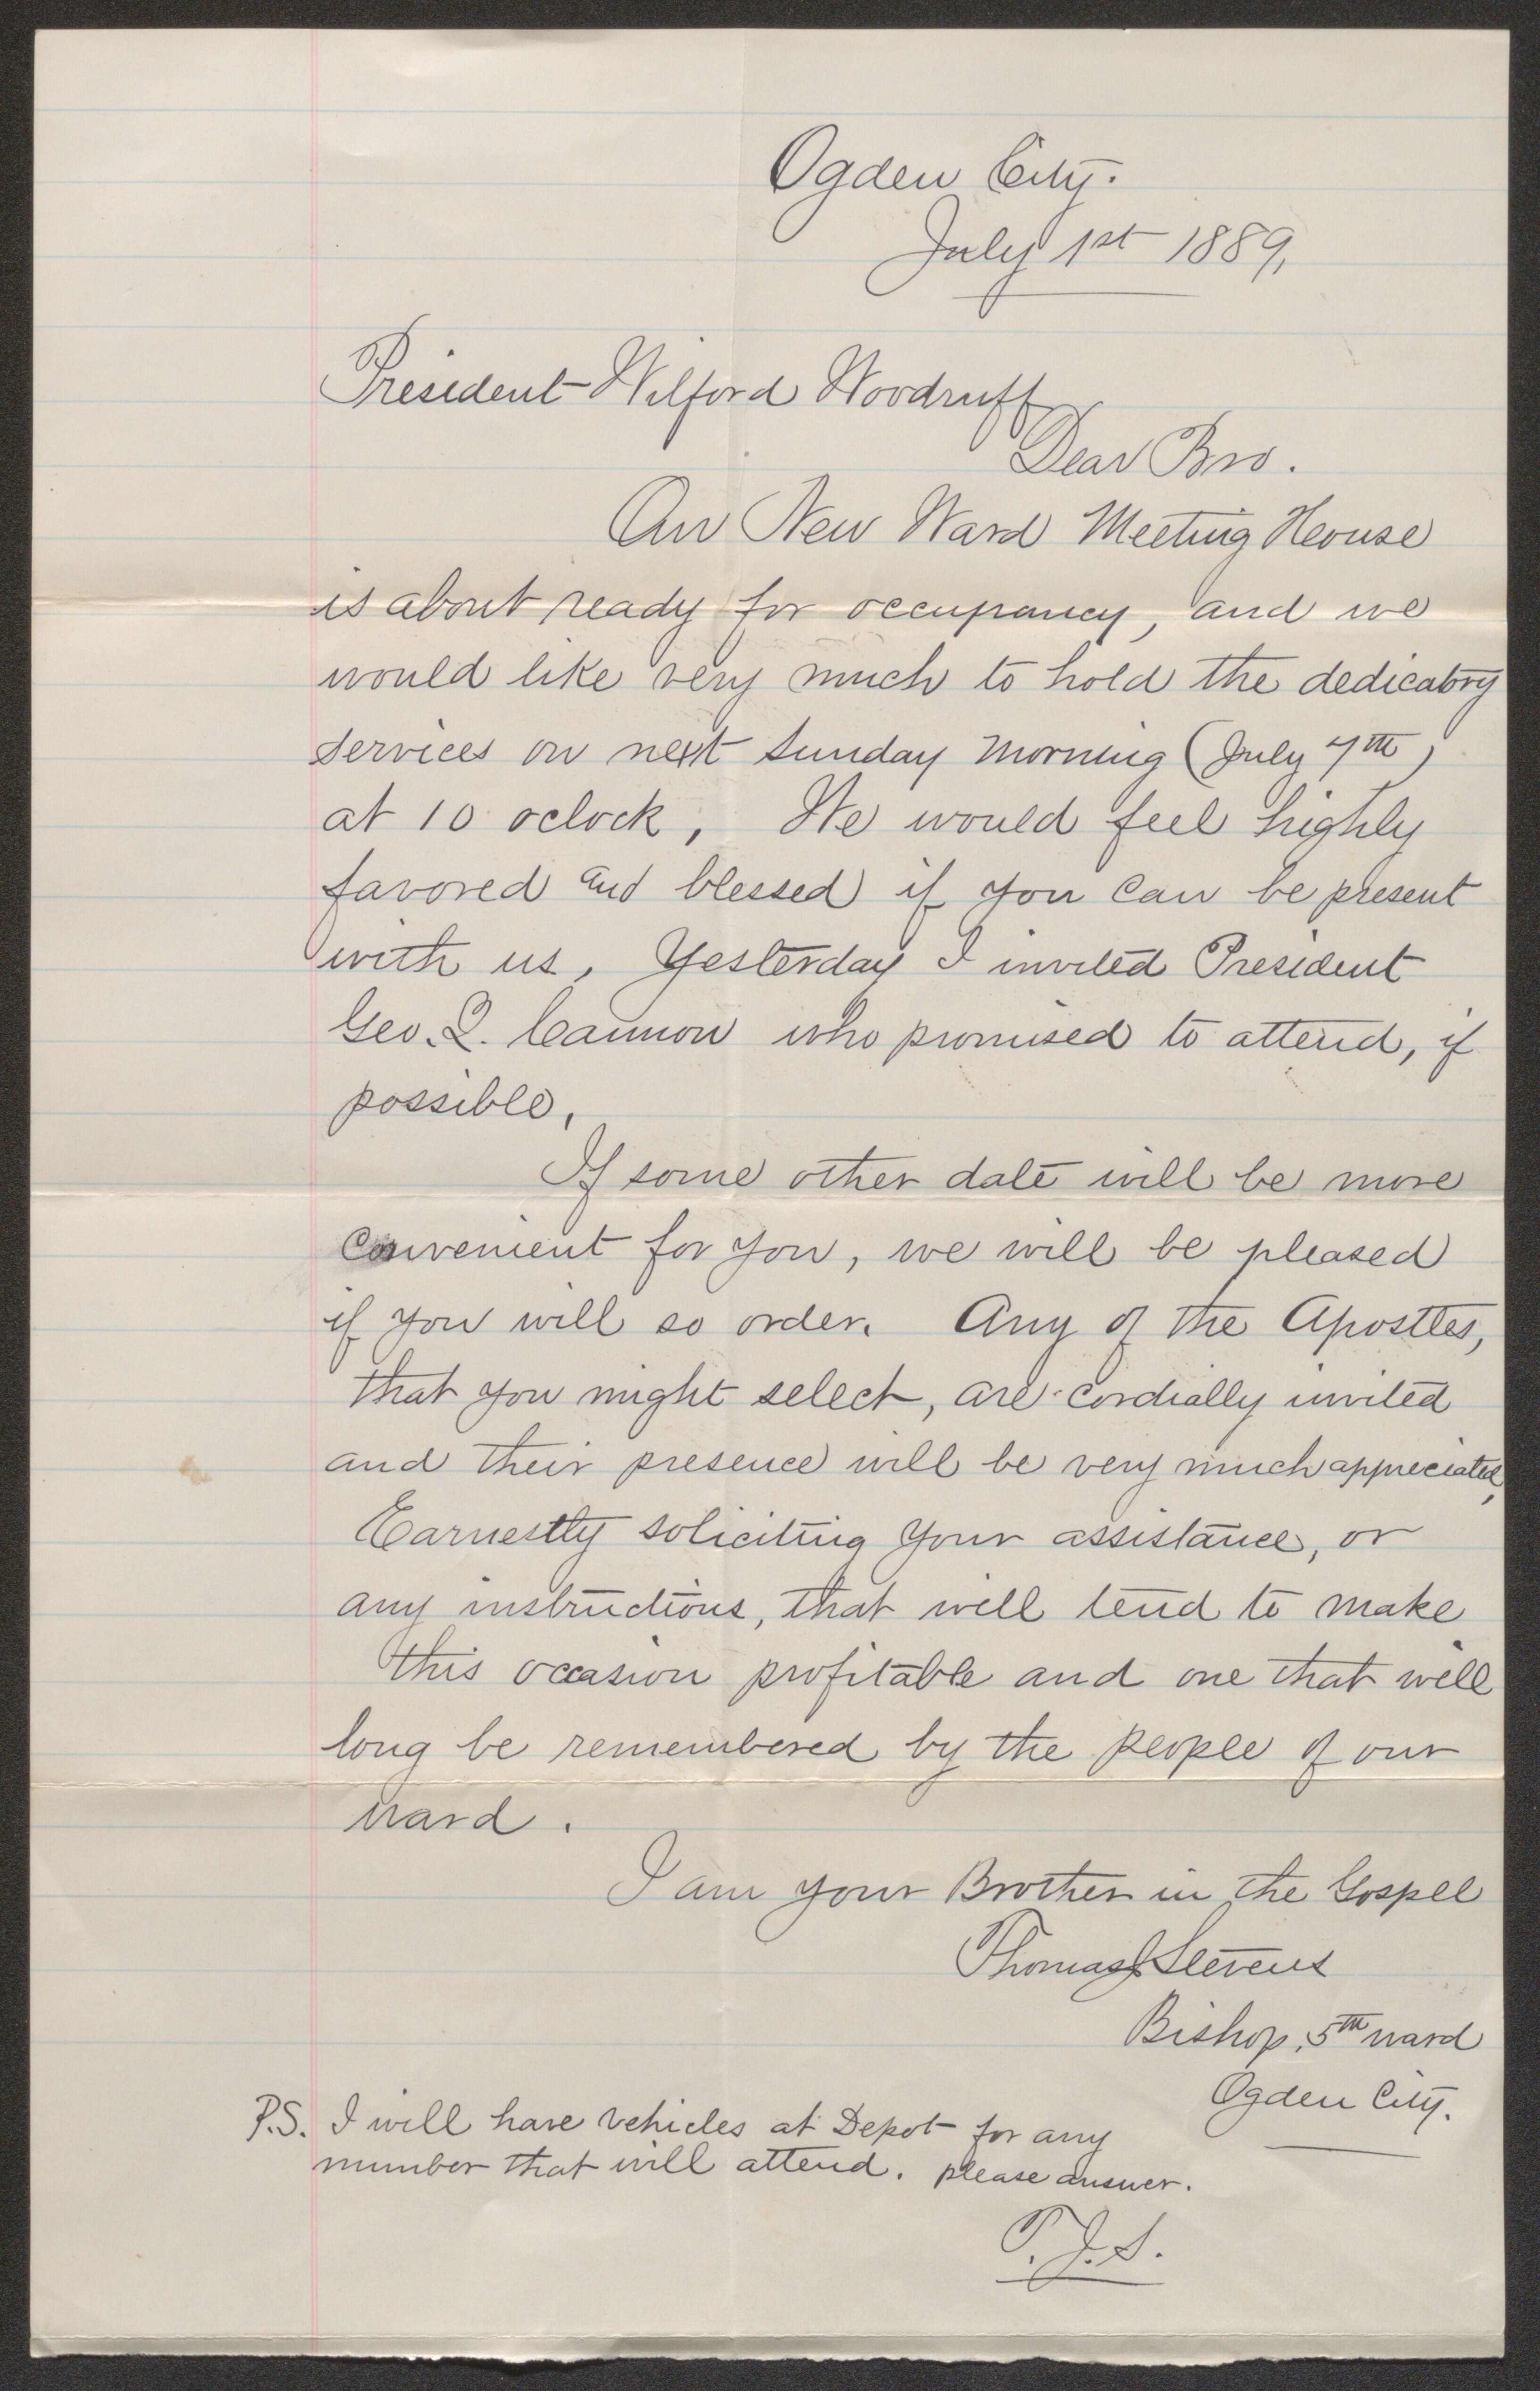 Ogden City.
July 1st 1889,
President Wilford Woodruff
Dear Bro.
Our New Ward Meeting House
is about ready for occupancy, and we
would like very much to hold the dedicatory
services on next Sunday morning (July 7th)
at 10 oclock, We would feel highly
favored and blessed if you can be present
with us, Yesterday I invited President
Geo. Q. Cannon who promised to attend, if
possible,
If some other date will be more
convenient for you, we will be pleased
if you will so order. Any of the Apostles,
that you might select, are cordially invited
and their presence will be very much appreciated,
Earnestly soliciting your assistance, or
any instructions, that will tend to make
this occasion profitable and one that will
long be remembered by the people of our
ward.
I am your Brother in the Gospel
Thomas J Stevens
Bishop, 5th ward
Ogden City.
P.S. I will have vehicles at Depot for any
number that will attend. please answer.
T.J.S.